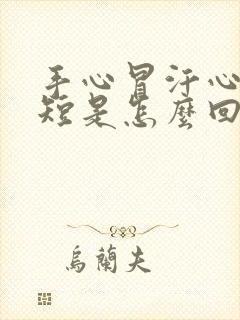 手心冒汗心
短是怎麼回
烏蘭夫